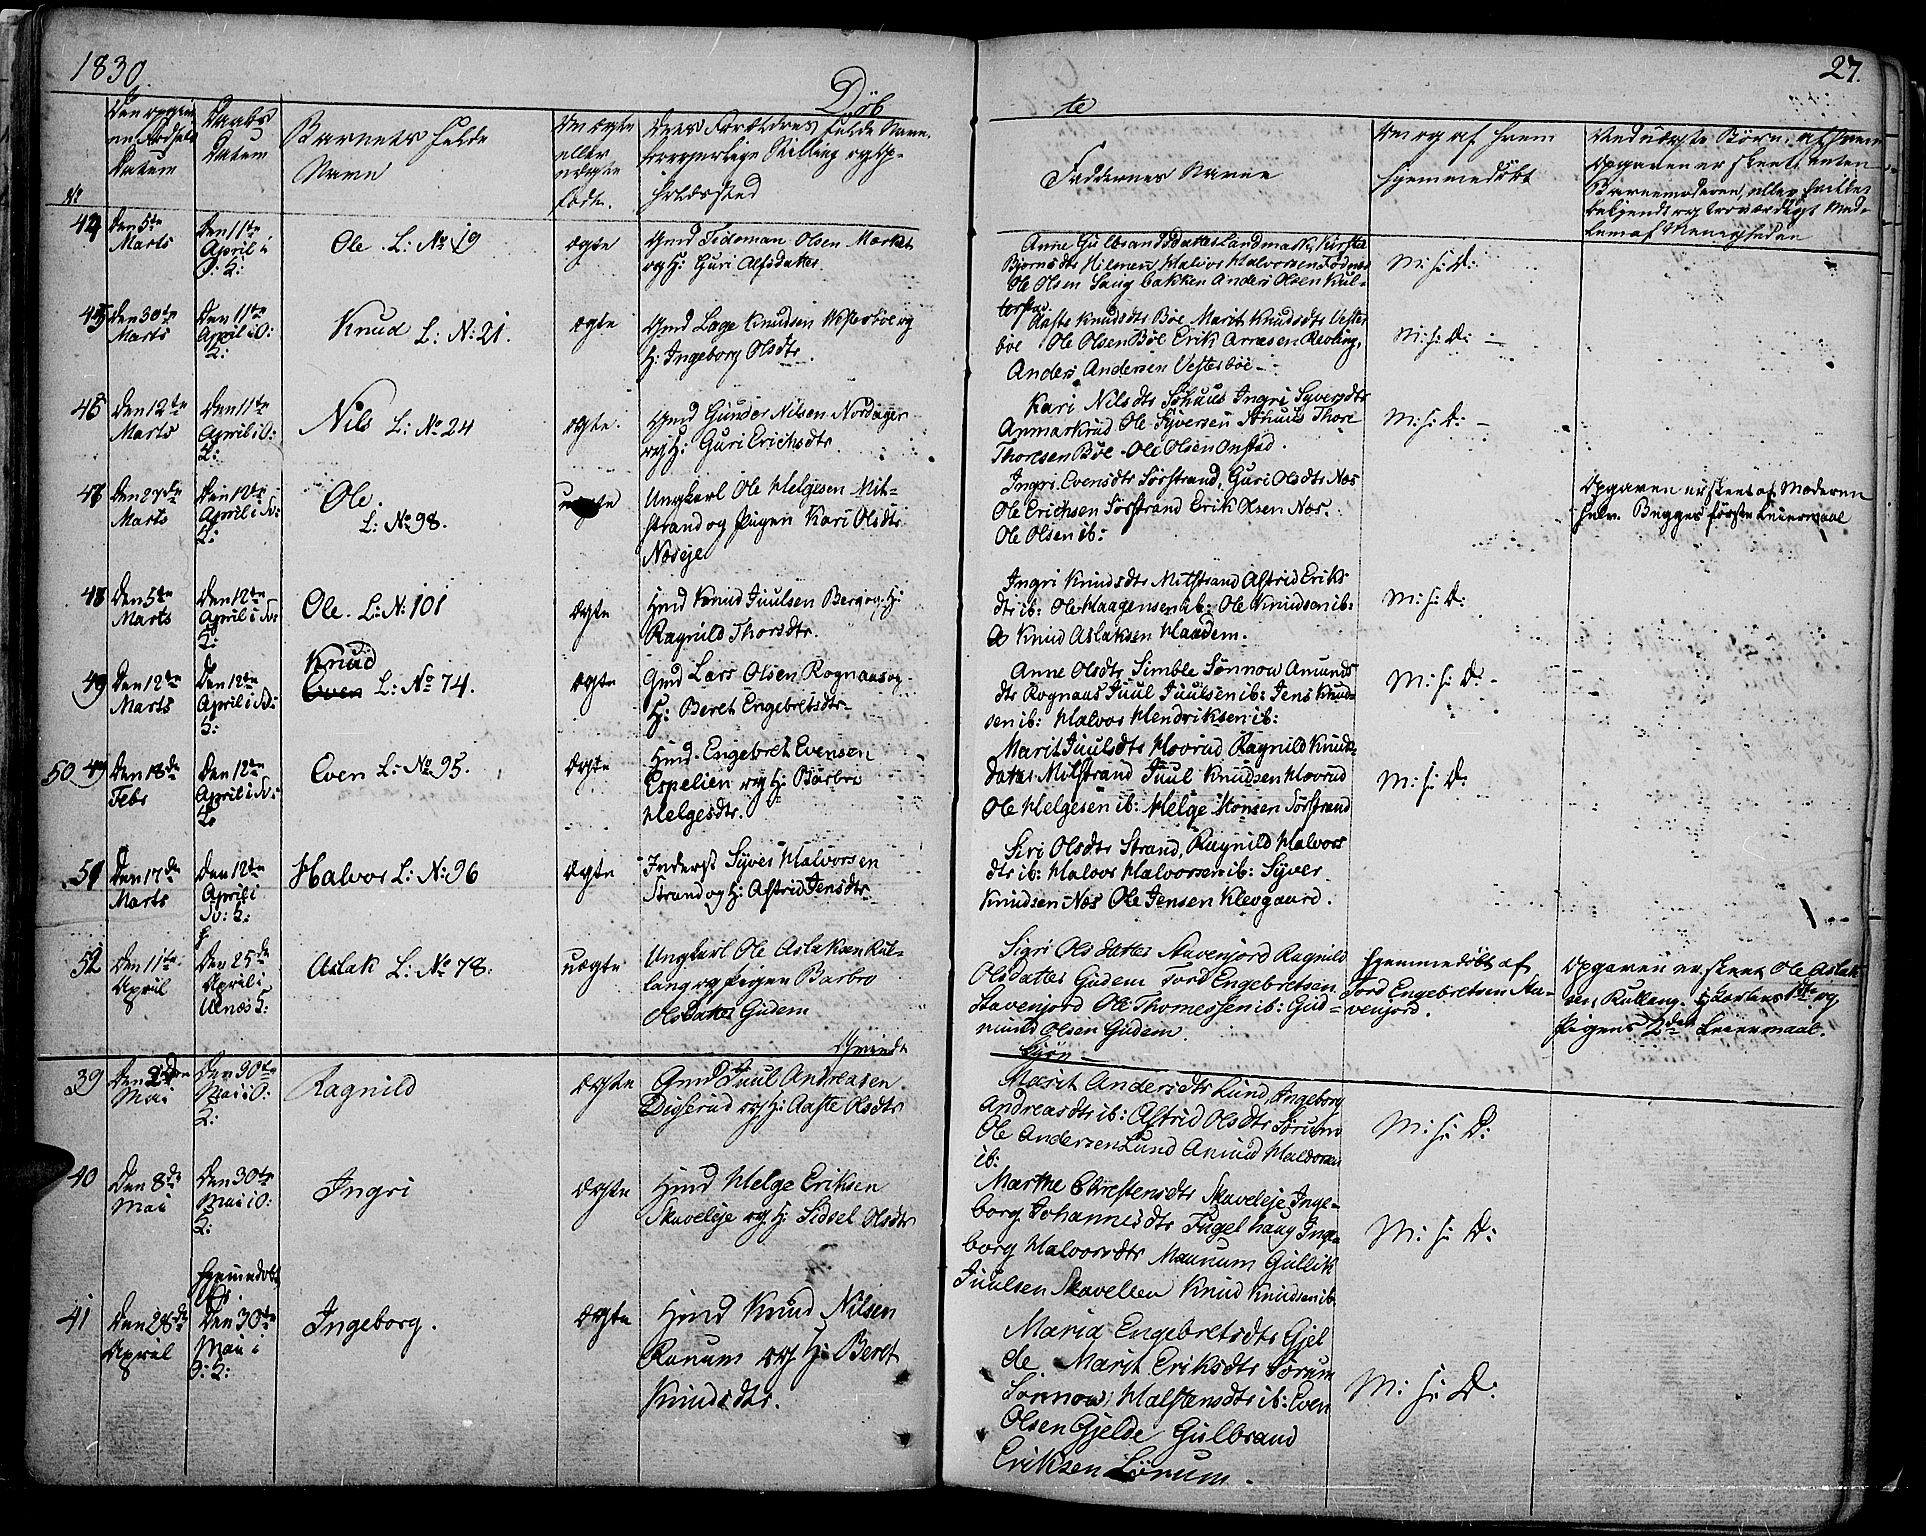 1830.
27.
Døb
te
No
Datum
Daabs
Datum
Barnets fulde
Navn
Om ægte
eller
uægte
fødte.
Faddernes Navne
Om og af hvem
hjemmedøbt
44
Den 5te
Marts
Den 11te
April i
O: K:
Ole. L: No 19
ægte
Gmd Tideman Olsen
og H: Guri Alfsdatter.
Anne Gulbrandsdatter Landmark, Kirsti
Bjørnsdtr Hilmen, Halvor Halvorsen
Ole Olsen Haugbakken Anders Olsen
M: h: D:
45
Den 30te
Marts
Den 11te
April i O:
K:
Knud L: N: 21.
ægte
Gmd Lage Knudsen Vesterbøe og
H: Ingeborg Olsdtr.
Aaste Knudsdtr Bøe Marit Knudsdtr Vester
bøe Ole Olsen Bøe Erik Arnesen
Anders Andersen Vesterbøe
M: h: D:
46
Den 12te
Marts
Den 11te
April i O:
K:
Nils L: No 24
ægte.
Gmd Gunder Nilsen Nordager
og H: Guri Erichsdtr.
Kari Nilsdtr Ingri Syversdtr
Ole Syversen Thore
Thoresen Bøe Ole Olsen Onstad.
M: h: D:
47
Den 27de
Marts
Den 12te
April i
K:
Ole.
L: No 98.
uægte
Ungkarl Ole Helgesen Mit-
strand og Pigen Kari Olsdtr
Næseje
Ingri Evensdtr Sørstrand, Guri Olsdtr Næs
Ole Erichsen Sørstrand Erik Olsen Næs.
Ole Olsen ib:
Opgaven er skeet af Moderen
selv. Begges første Leiermaal
48
Den 5te
Marts
Den 12te
April i
K:
Ole. L: N: 101
ægte
Hmd Knud Juulsen Berg og H:
Ragnild Thorsdtr.
Ingri Knudsdtr Mitstrand Astrid Eriks
dtr ib: Ole Haagensen ib: Ole Knudsen ib:
Knud Aslaksen Haadem.
M: h: D:
49
Den 12te
Marts
Den 12te
April i
K:
Knud
Even L: No 74.
ægte
Gmd Lars Olsen Rognaas og
H: Beret Engebretsdtr.
Anne Olsdtr Simble Sønnow Amunds
dtr Rognaas Juul Juulsen ib: Jens Knud-
sen ib: Halvor Hendriksen ib:
M: h: D:
50
Den 18de
Febr
Den 12te
April i
K:
Even L: No 95.
ægte
Hmd Engebret Evensen
Espelien og H: Barbro
Helgesdtr.
Marit Juulsdtr Hovrud Ragnild Knuds
datter Mitstrand Juul Knudsen Hovrud
Ole Helgesen ib: Helge Hansen Sørstrand
M: h: D:
51
Den 17de
Marts
Den 12te
April i
K:
Halvor L: N: 96
ægte
Inderst Syver Halvorsen
Strand og H: Astrid Jensdtr.
Siri Olsdtr Strand, Ragnild Halvors
dtr ib: Halvor Halvorsen ib: Syver
Knudsen Næs Ole Jensen Klevgaard.
52
Den 11te
April
Den 25de
April i
Ulnæs K:
Aslak L: No 78.
uægte
Ungkarl Ole Aslaksen Kul-
lang og Pigen Barbro
Olsdatter Gudem
Sigri Olsdatter Stavenjord Ragnild
Olsdatter Gudem Tord Engebretsen
Stavenjord Ole Thomessen ib: Gud-
mund Olsen Gudem.
Hjemmedøbt af
Tord Engebretsen Sta-
venjord.
Opgaven er skeet Ole Aslak
sen Kullang. Karlens 1ste og
Pigens 2det Leiermaal.
Qvinde
kjøn
39
Mai
Den 30te
Mai i O:
K:
Ragnild
ægte
Gmd Juul Andreasen
Digerud og H: Aaste Olsdtr
Marit Andersdtr Lund, Ingeborg
Andreasdtr ib: Astrid Olsdtr Sørum
Ole Andersen Lund Amund Halvorsen
ib:
M: h: D:
40
Den 8de
Mai
Den 30te
Mai i O:
K:
Ingri
ægte
Hmd Helge Eriksen
Skaveleje og H: Sidsel Olsdtr
Marthe Christensdtr Skaveleje Inge-
borg Johannesdtr Fugelhaug Inge
borg Halvorsdtr Maurum Gullik
Juulsen Skavelien Knud Knudsen ib
M: h: D:
41
Den 28de
April
Hjemmedøbt
Den 30te
Mai i
O: K:
Ingeborg.
ægte
Hmd Knud Nilsen
Ranum og H: Beret
Knudsdtr.
Maria Engebretsdtr Gjel
de Marit Eriksdtr Sørum
Sønnow Halstensdtr ib: Even
Olsen Gjelde Gulbrand
Eriksen Sørum.
M: h: D: